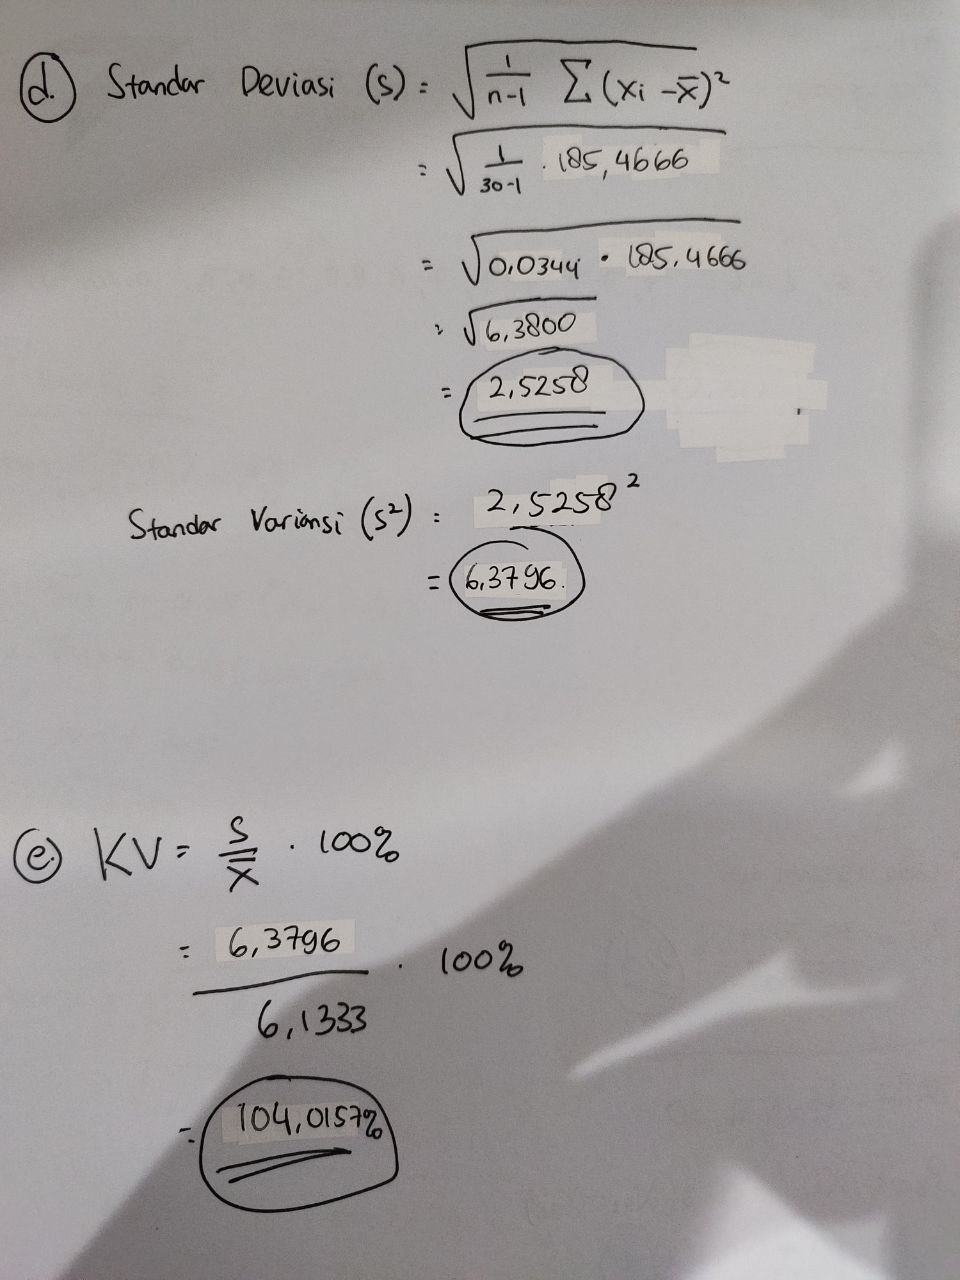 d. Standar Deviasi (s) = √ 1/n-1 Σ (xi - x̄)²
= √ 1/30-1 . 185,4666
= √ 0,0344 • 185,4666
= √ 6,3800
= 2,5258
Standar Variansi (s²) = 2,5258²
= 6,3796.
e. KV = s/x̄ . 100%
= 6,3796/6,1333 . 100%
= 104,0157%